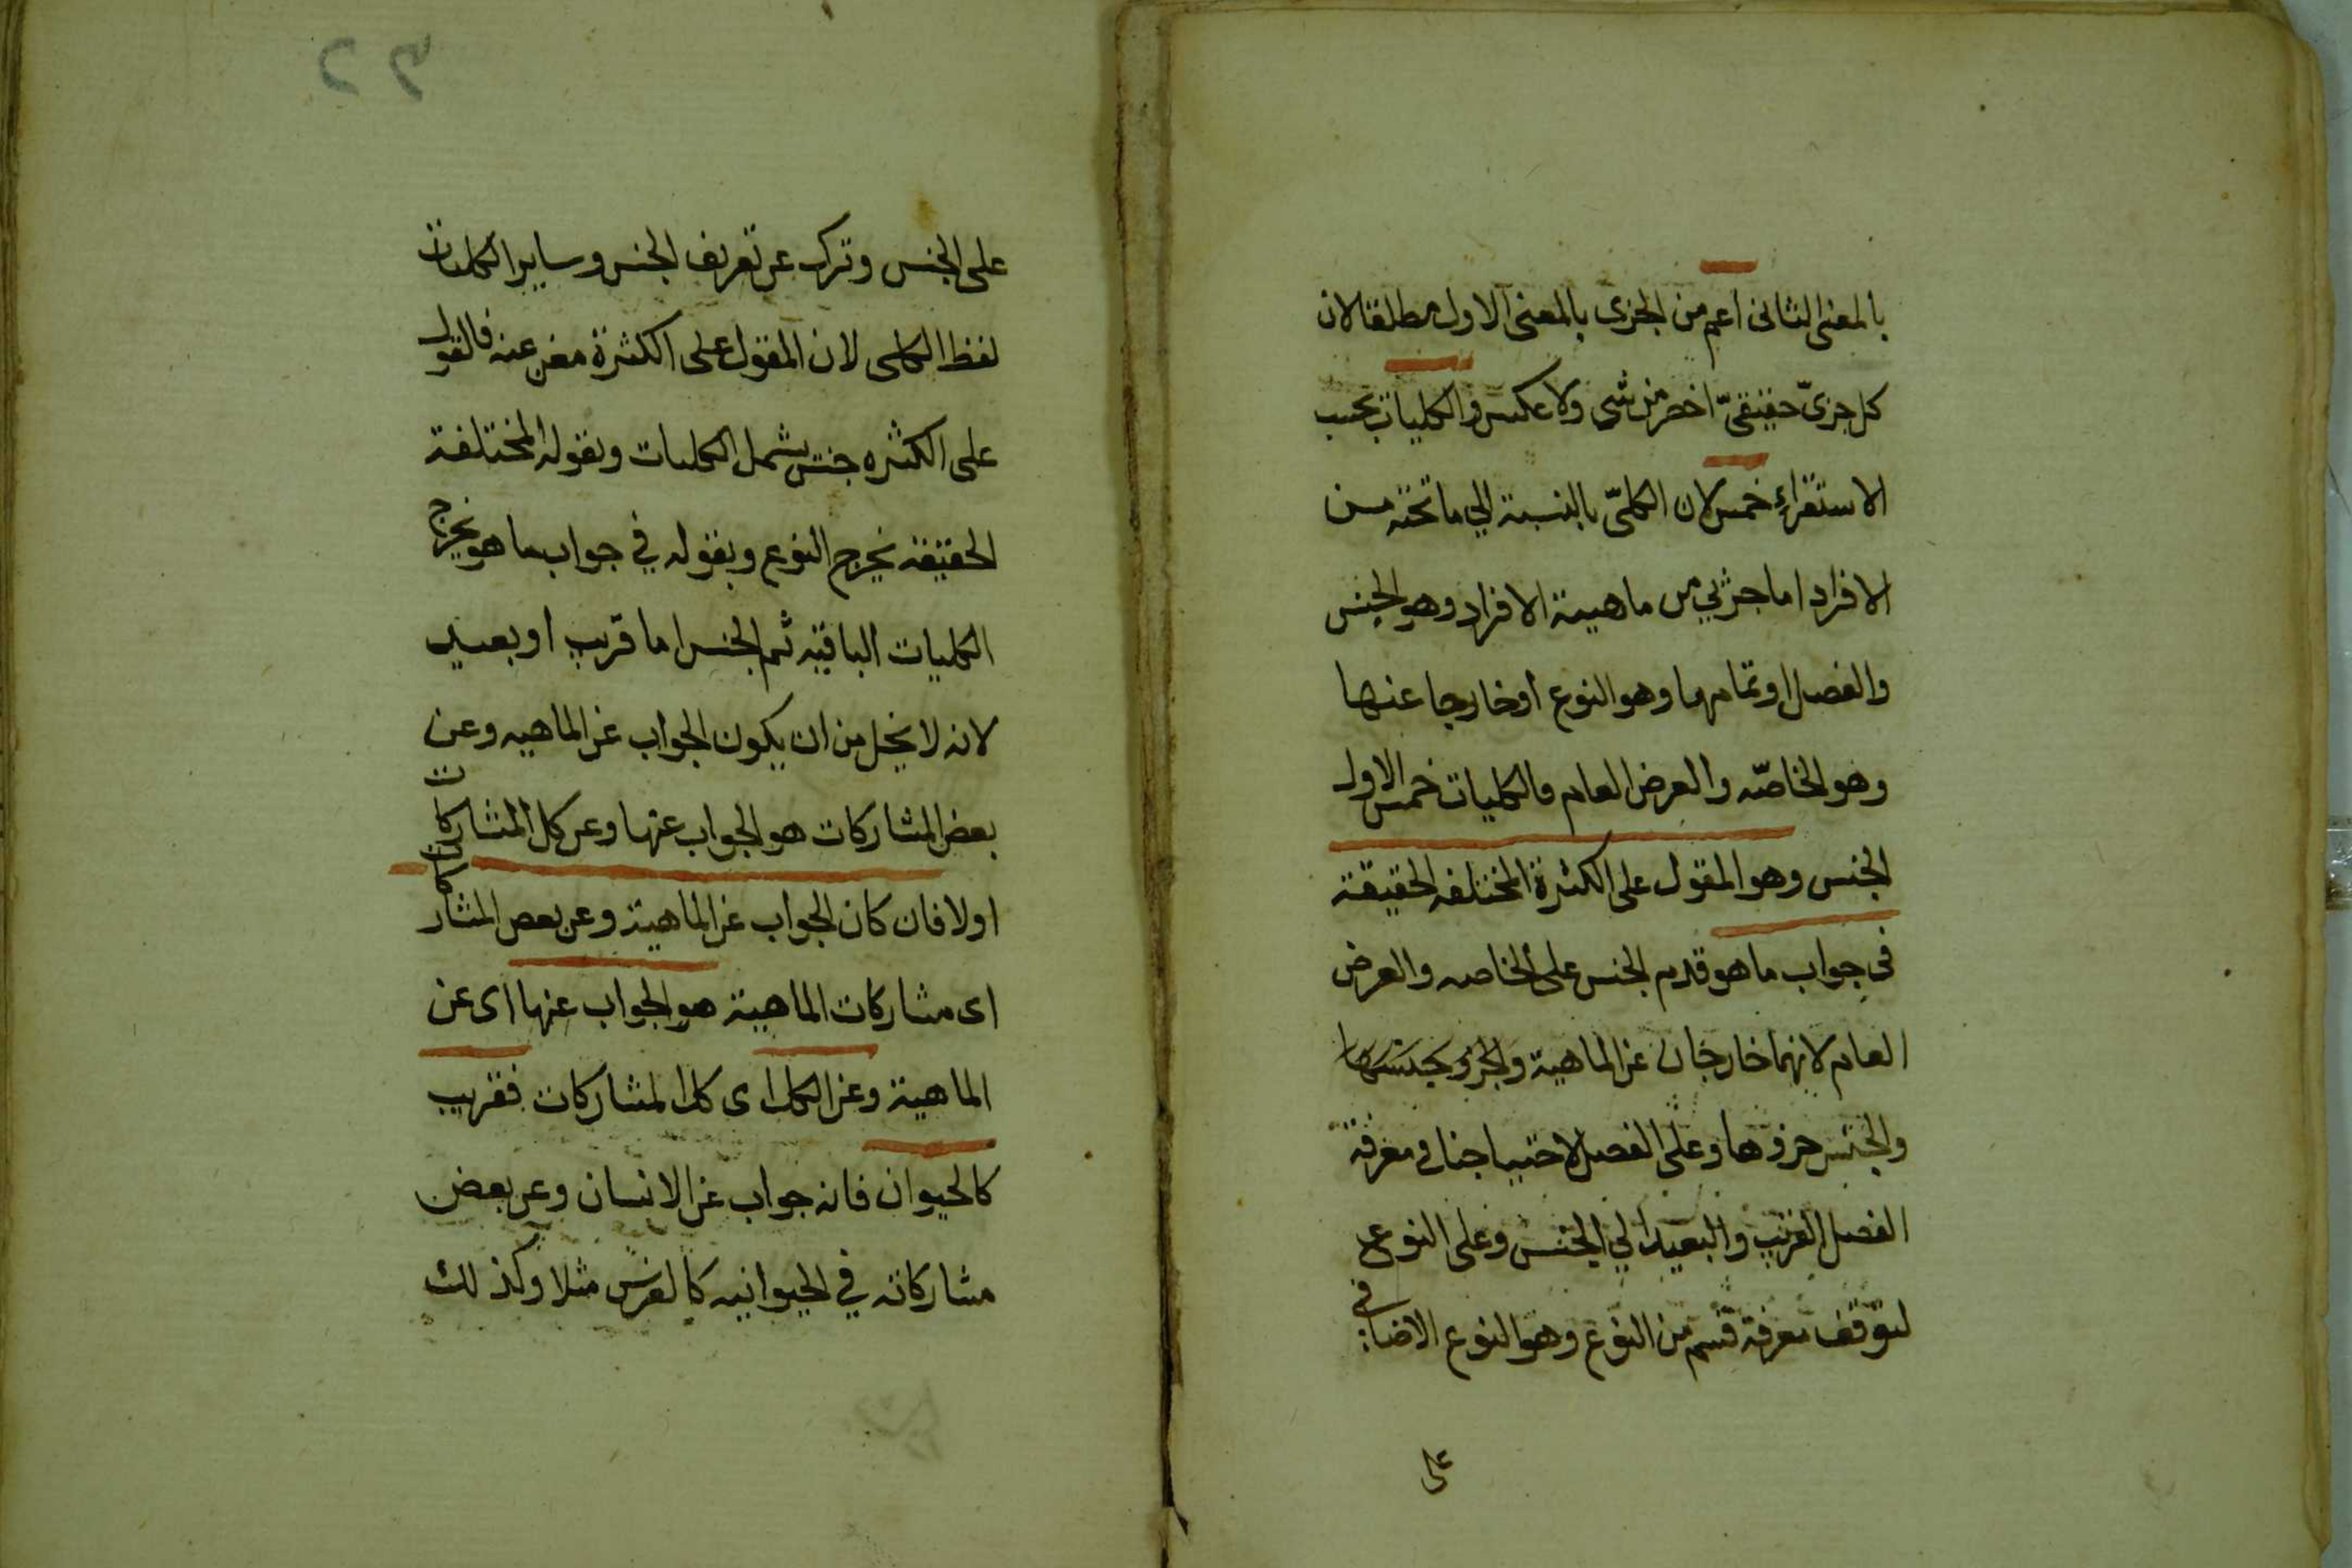 بالمعنى الثانى اعم من الجزى بالمعنى الاول مطلقا لان
كل جزىّ حقيقىّ اخص من شى ولا عكس والكليات بحسب
الاستقراء خمس لان الكلىّ بالنسبة الي ما تحته من
الافراد اما جزئي من ماهية الافراد وهو الجنس
والفصل او تمامهما وهو النوع او خارجا عنها
وهو الخاصّه والعرض العام فالكليات خمس الاول
الجنس وهو المقول على الكثرة المختلفه الحقيقة
فى جواب ما هو قدم الجنس على الخاصه والعرض
العام لانهما خارجان عن الماهية والجزو
والجنس جزوها وعلى الفصل لاحتياجنا فى معرفة
الفصل القريب والبعيد الي الجنس وعلى النوع
لتوقف معرفة قسم من النوع وهو النوع الاضافى
على
على الجنس وترك عن تعريف الجنس وساير الكليات
لفظ الكلى لان المقول على الكثرة مغن عنه فالقول
على الكثره جنس يشمل الكليات وبقوله المختلفة
الحقيقه يخرج النوع وبقوله في جواب ما هو يخرج
الكليات الباقيه ثم الجنس اما قريب او بعيد
لانه لا يخل من ان يكون الجواب عن الماهيه وعن
بعض المشاركات هو الجواب عنها وعن كل المشاركات
اولا فان كان الجواب عن الماهية وعن بعض المشاركات
اى مشاركات الماهية هو الجواب عنها اى عن
الماهية وعن الكل اى كل المشاركات فقريب
كالحيوان فانه جواب عن الانسان وعن بعض
مشاركاته في الحيوانيه كالفرس مثلا وكذلك